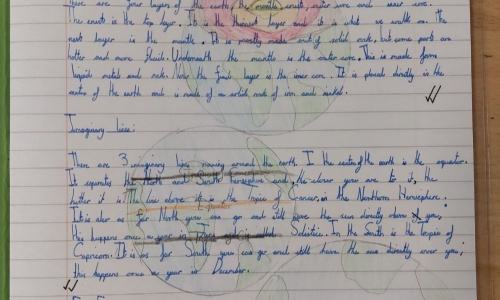 There are four layers of the earth, the mantle, crust, outer core and inner core.
The crust is the top layer. It is the thinnest layer and it is what we walk on. The
next layer is the mantle. It is mostly made out of solid rock, but some parts are
hotter and more fluid. Underneath the mantle is the outer core. This is made form
liquid metals and rock. Now the final layer is the inner core. It is placed directly in the
centre of the earth and is made of a solid rock of iron and nickel.
Imaginary lines:
There are 3 imaginary lines moving around the earth. I the centre of the earth is the equator.
It separates the North and South hemisphere and the closer you are to it, the
hotter it is. The line above it is the Tropic of Cancer, in the Northern Hemisphere.
Equator
It is also as far North you can go and still have the sun directly above you,
this happens once a year in called Solstice. In the South is the tropic of
Capricorn. It is as far South you can go and still have the sun directly over you,
this happens once a year in December.